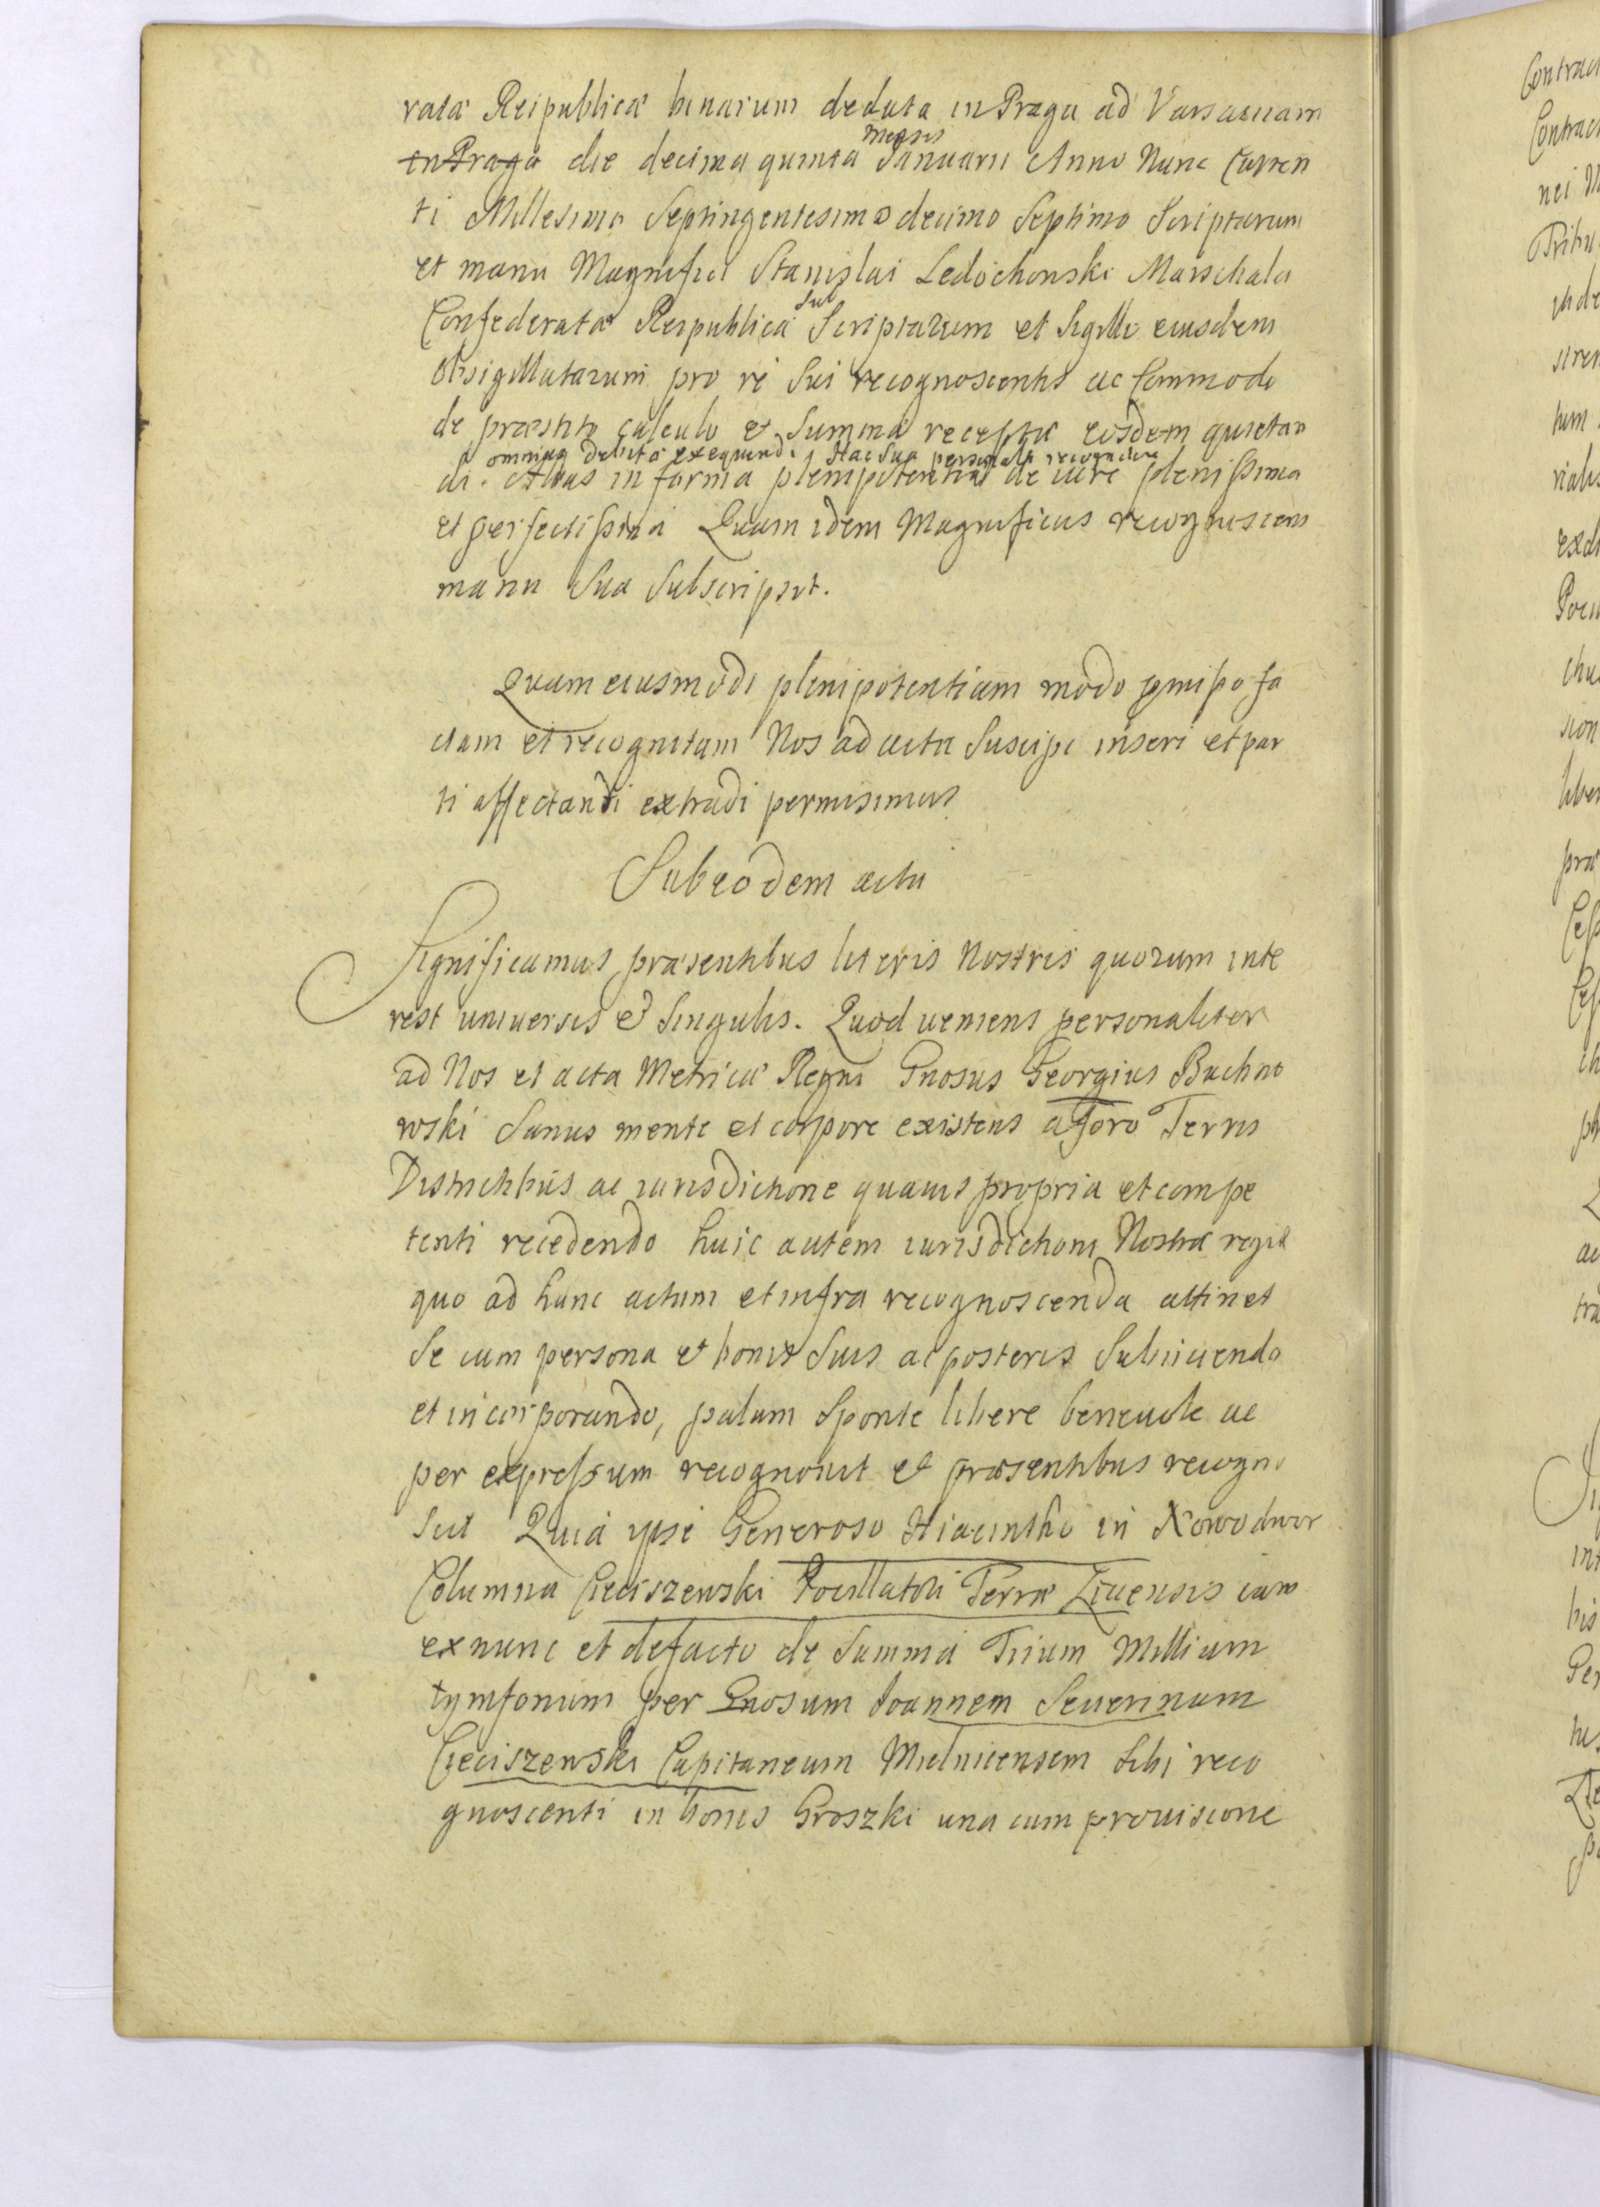 ratæ Reipublicæ binarum de data in Praga ad Varsaviam
in Praga die decima quinta mensis Januarii Anno Nunc Curren
ti Millesimo Septingentesimo decimo Septimo Scriptarum
et manu Magnifici Stanislai Ledochowski Marschalci
Confederatæ Reipublicæ Sub Scriptarum et Sigillo eiusdem
obsigillatarum pro re Sui recognoscentis ac Commodo
de præstito calculo et Summa recepta eosdem quietan
di. omniaq debita exequendi Hac Sua personali recognitione
Aliàs in forma plenipotentiæ de iure plenissima
et perfectissima Quam idem Magnificus recognoscens
manu Sua Subscripsit.
Quam eiusmodi plenipotentiam modo præmisso fa
ctam et recognitam Nos ad acta Suscipi inseri et par
ti affectandi extradi permisimus
Sub eodem actu
Significamus præsentibus literis Nostris quorum inte
rest universis et Singulis. Quod veniens personaliter
ad Nos et acta Metricæ Regni Gnosus Georgius Buchno
wski Sanus mente et corpore existens a foro Terris
Districtibus ac iurisdictione quavis propria et compe
tenti recedendo huic autem iurisdictioni Nostræ regiæ
quo ad hunc actum et infra recognoscenda attinet
Se cum persona et bonis Suis ac posteris Subiiciendo
et incorporando, palam Sponte libere benevole ac
per expressum recognovit et præsentibus recogno
scit Quia ipse Generoso Hiacintho in Nowodwor
Columna Cieciszewski Pocillatori Terræ Livensis iam
ex nunc et de facto de Summa Trium Millium
tymfonum per Gnosum Joannem Severinum
Cieciszewski Capitaneum Mielnicensem Sibi reco
gnoscenti in bonis Groszki una cum provisione